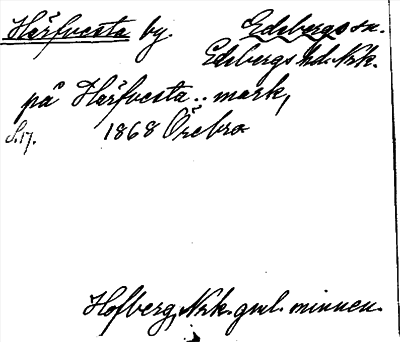 Härfvesta by. Edsbergs sn.
Edsbergs hd. Nrk.
på Härfvesta .. mark,
S.17. 1868 Örebro
Hofberg, Nrk. gml. minnen.